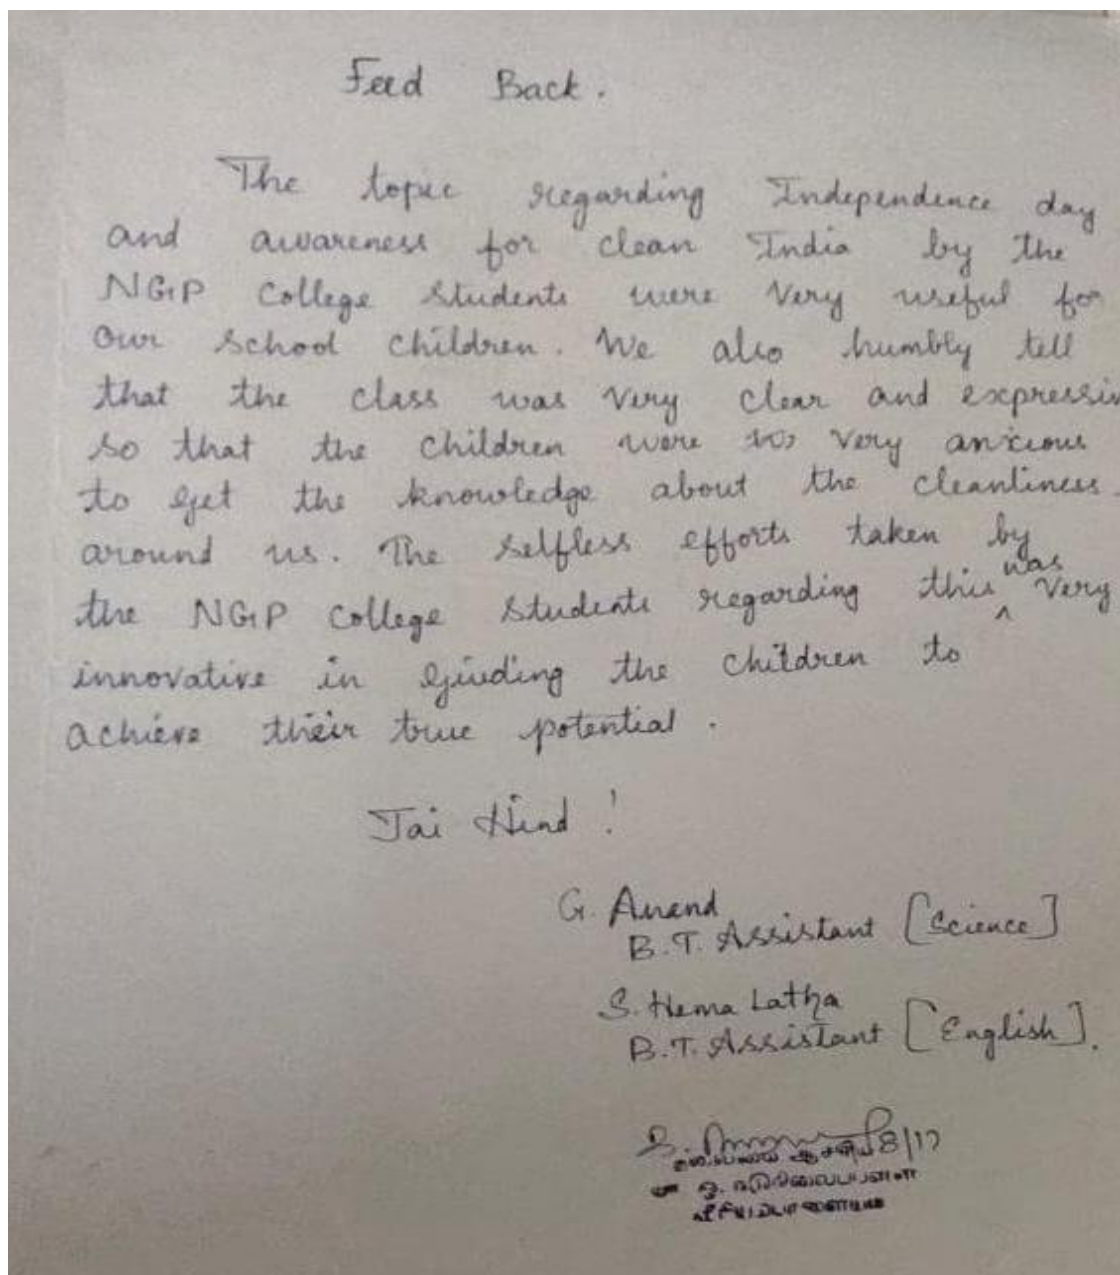 Feed Back.
The topic regarding Independence day
and awareness for clean India by the
NGP College Students were very useful for
our school children. We also humbly tell
that the class was very clear and expressiv
so that the children were very anxious
to get the knowledge about the cleanliness
around us. The selfless efforts taken by
the NGP College Students regarding this was very
innovative in guiding the children to
achieve their true potential.
Jai Hind !
G. Anand
B.T. Assistant [Science]
S. Hema Latha
B.T. Assistant [English].
8/17